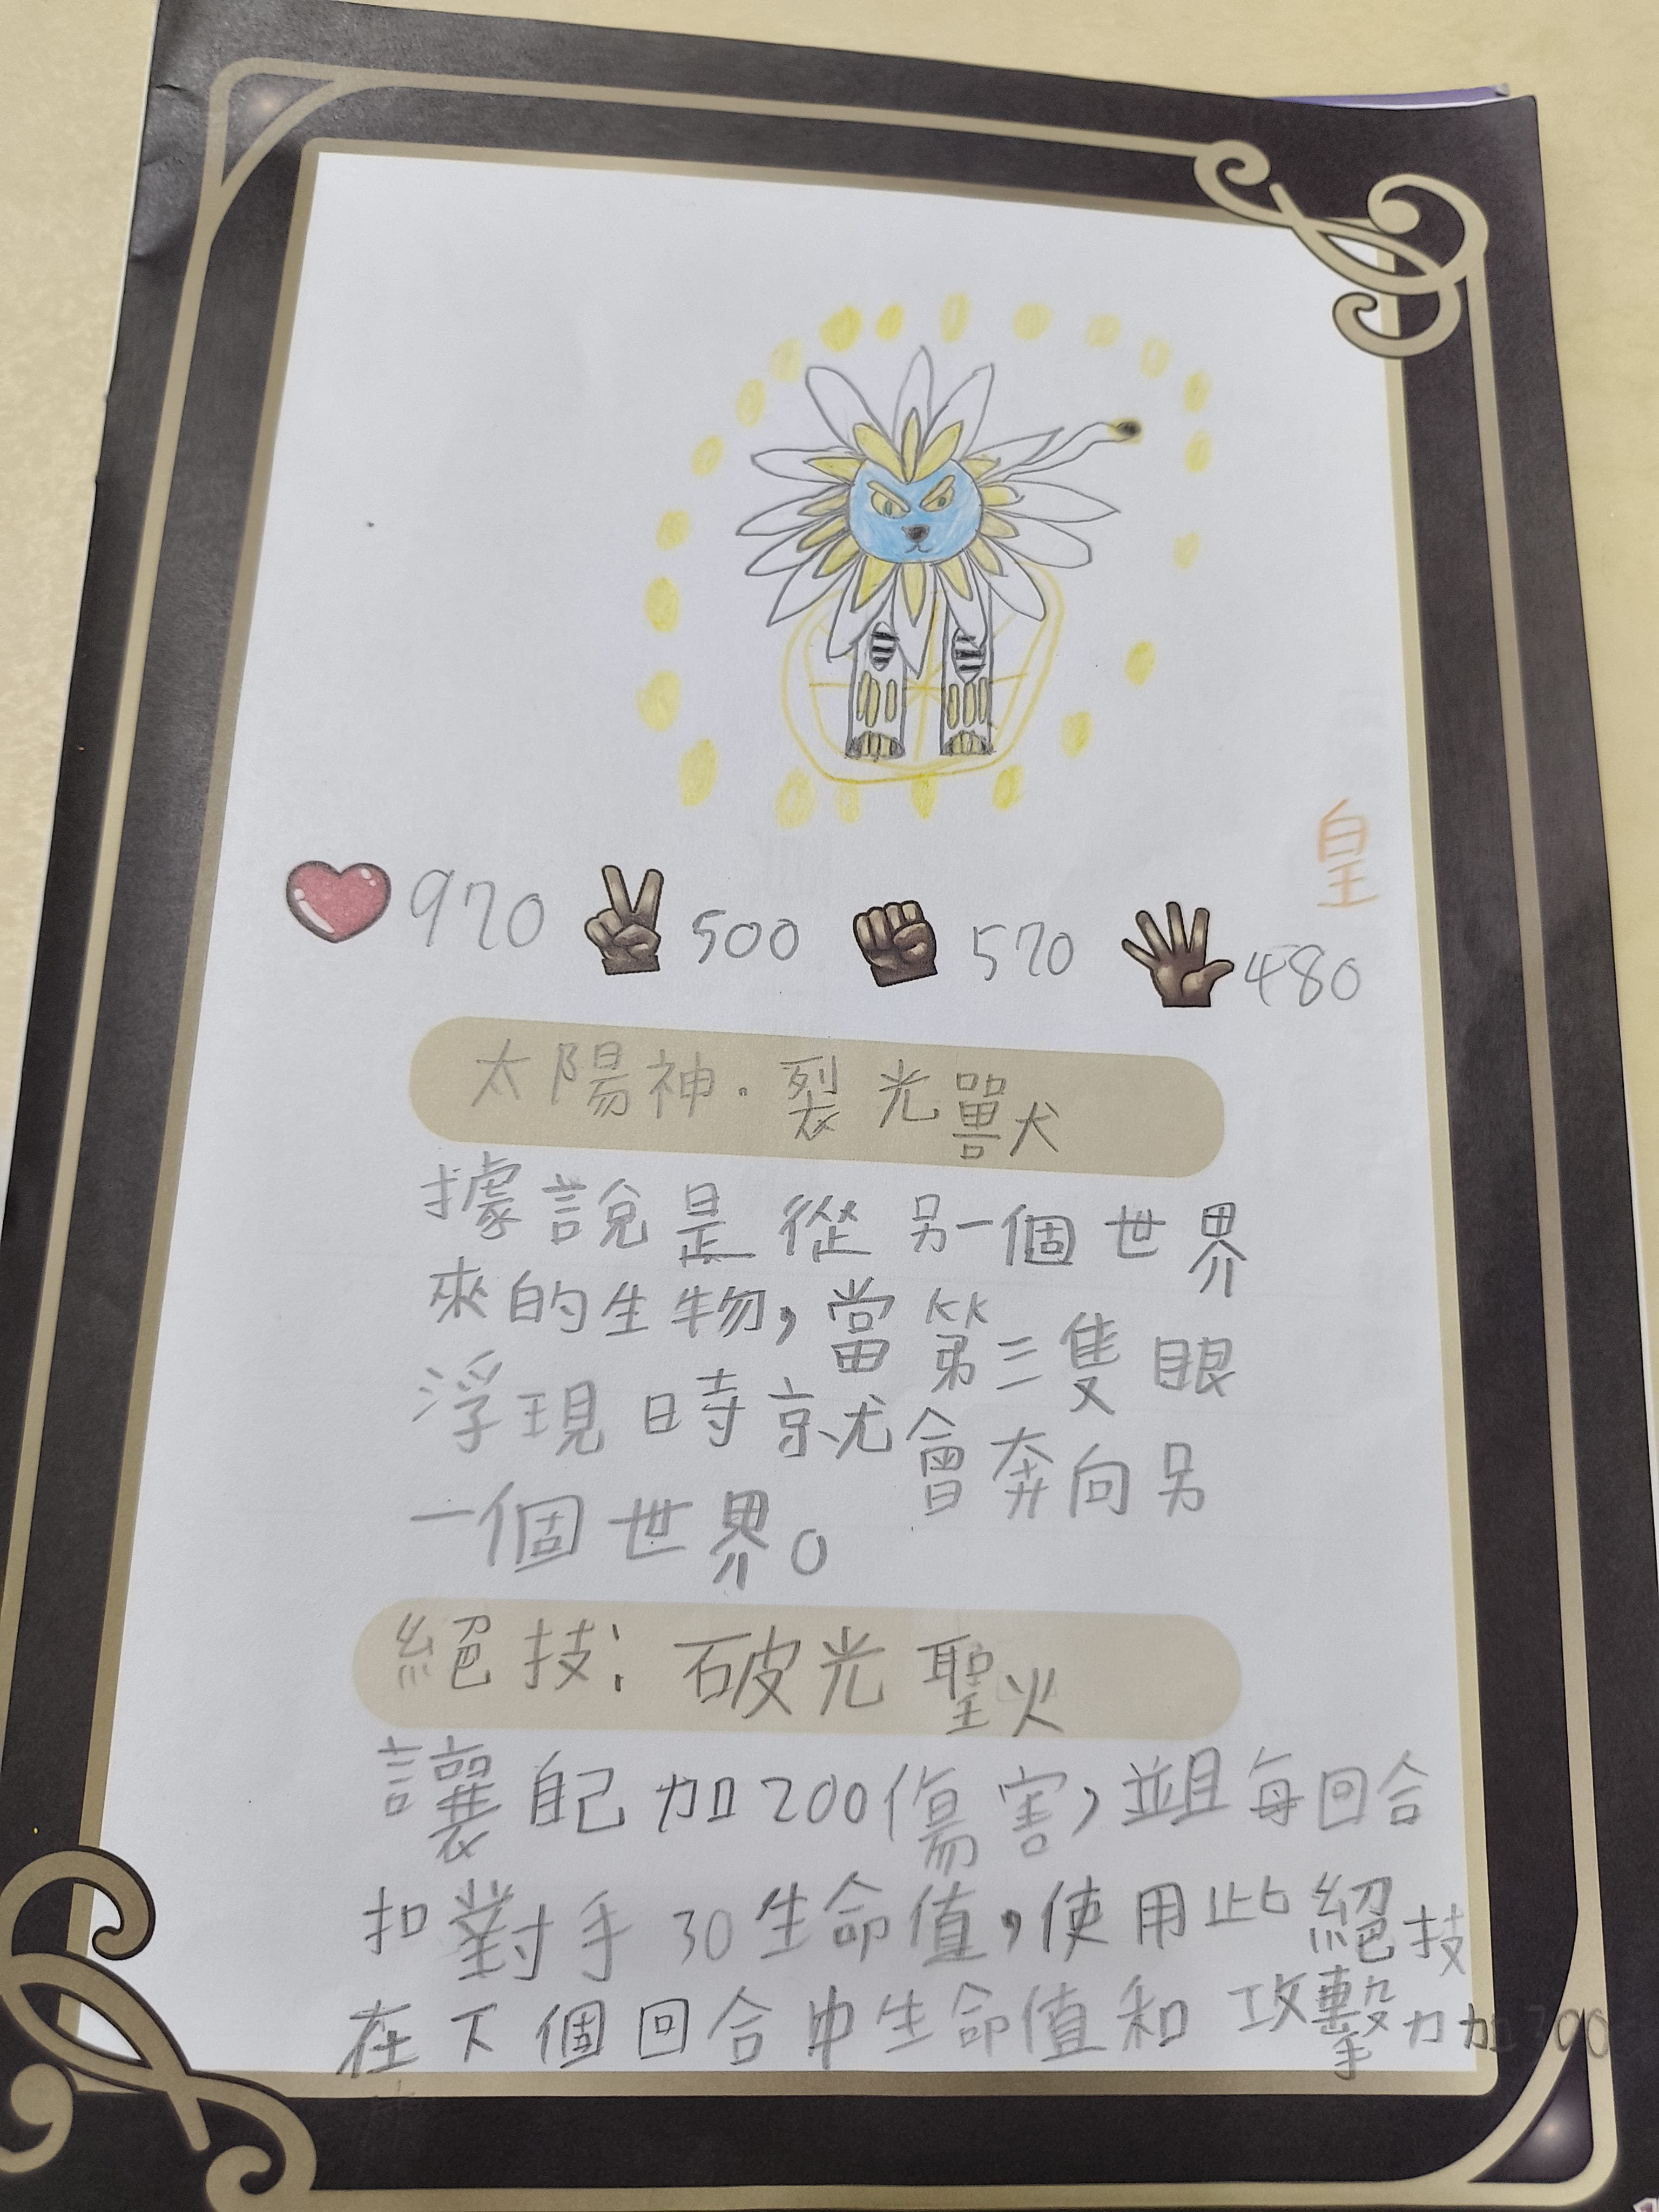 皇
970 500 570 480
太陽神．裂光獸
據說是從另一個世界
來的生物，當第三隻眼
浮現時就會奔向另
一個世界。
絕技：破光聖火
讓自己加200傷害，並且每回合
扣對手30生命值，使用此絕技
在下個回合中生命值和攻擊力加300